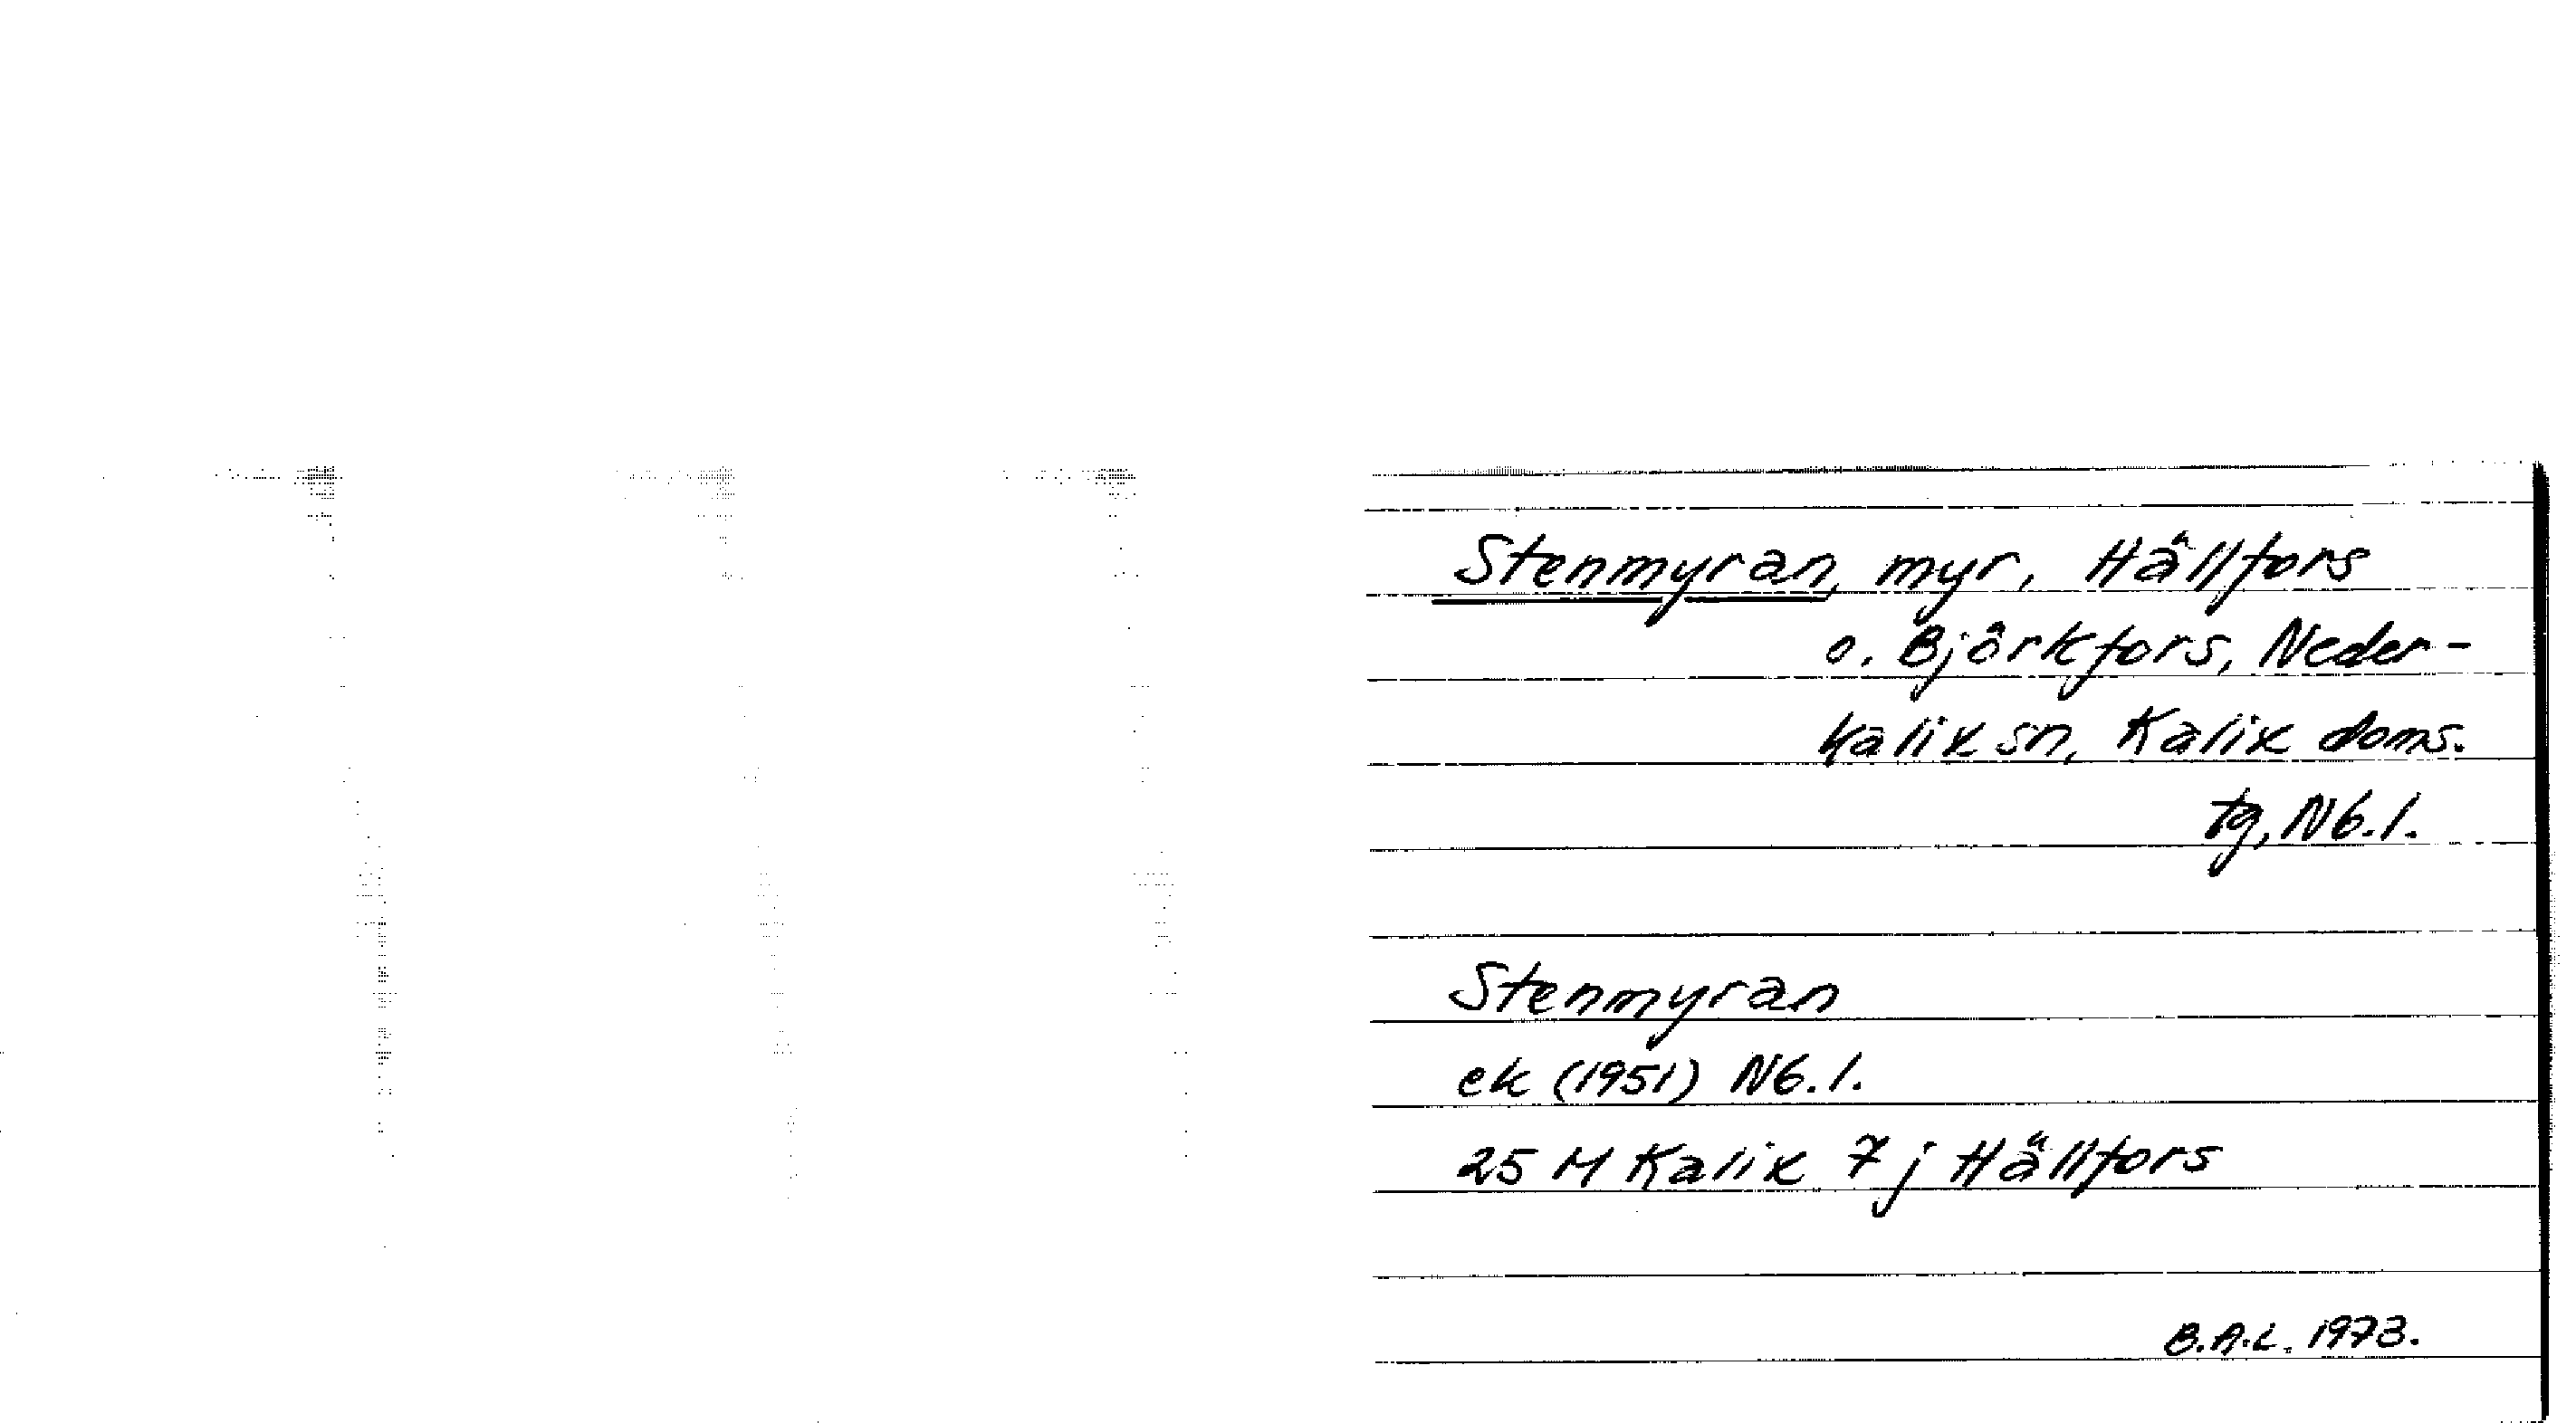 Stenmyran, myr, Hällfors
o. Björkfors, Neder-
kalix sn, Kalix doms.
tg, Nb. l.
Stenmyran
ek (1951) Nb. l.
25 M Kalix 7 j Hällfors
B.A.L. 1973.